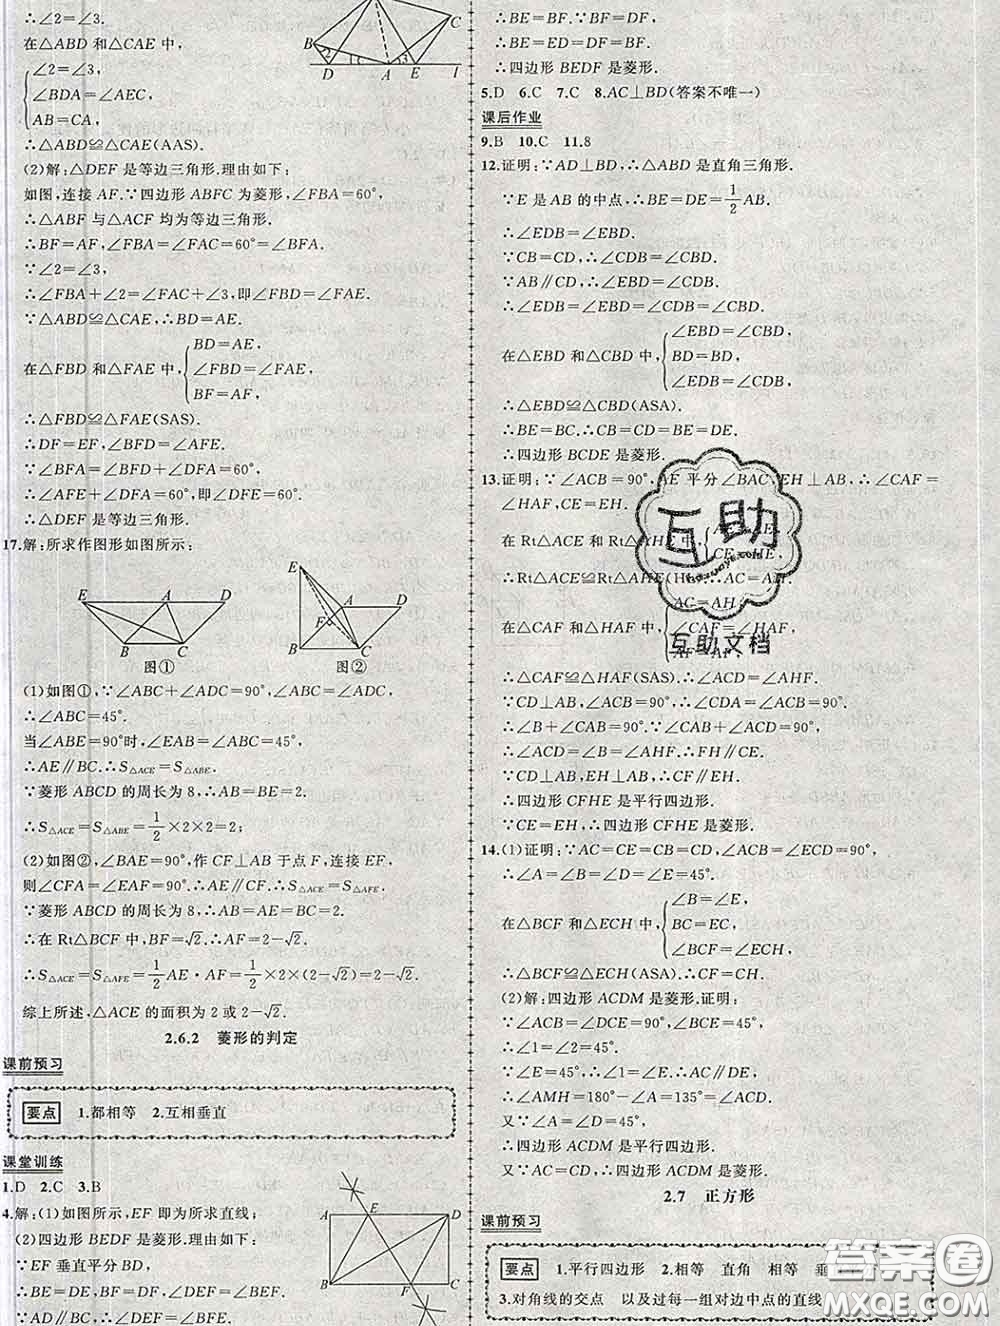 ∴∠2=∠3.
在△ABD 和△CAE 中,
∠2=∠3,
∠BDA=∠AEC,
AB=CA,
∴△ABD≌△CAE(AAS).
B
C
D
A
E
l
(2)解:△DEF 是等边三角形.理由如下:
如图,连接 AF.∵四边形 ABFC 为菱形,∠FBA=60°,
∴△ABF 与△ACF 均为等边三角形.
∴BF=AF,∠FBA=∠FAC=60°=∠BFA.
∵∠2=∠3,
∴∠FBA+∠2=∠FAC+∠3,即∠FBD=∠FAE.
∵△ABD≌△CAE,∴BD=AE.
在△FBD 和△FAE 中,
BD=AE,
∠FBD=∠FAE,
BF=AF,
∴△FBD≌△FAE(SAS).
∴DF=EF,∠BFD=∠AFE.
∵∠BFA=∠BFD+∠DFA=60°,
∴∠AFE+∠DFA=60°,即∠DFE=60°.
∴△DEF 是等边三角形.
17.解:所求作图形如图所示:
E A D
B C
图①
E
A D
F
B C
图②
(1)如图①,∵∠ABC+∠ADC=90°,∠ABC=∠ADC,
∴∠ABC=45°.
当∠ABE=90°时,∠EAB=∠ABC=45°,
∴AE∥BC.∴S△ACE=S△ABE.
∵菱形 ABCD 的周长为 8,∴AB=BE=2.
∴S△ACE=S△ABE=1/2×2×2=2;
(2)如图②,∠BAE=90°,作 CF⊥AB 于点 F,连接 EF,
则∠CFA=∠EAF=90°.∴AE∥CF.∴S△ACE=S△AFE.
∵菱形 ABCD 的周长为 8,∴AB=AE=BC=2.
∴在 Rt△BCF 中,BF=√2.∴AF=2-√2.
∴S△ACE=S△AFE=1/2AE·AF=1/2×2×(2-√2)=2-√2.
综上所述,△ACE 的面积为 2 或 2-√2.
2.6.2 菱形的判定
课前预习
要点 1.都相等 2.互相垂直
课堂训练
1.D 2.C 3.B
4.解:(1)如图所示,EF 即为所求直线;
(2)四边形 BEDF 是菱形.理由如下:
∵EF 垂直平分 BD,
∴BE=DE,BF=DF,∠DEF=∠BEF.
∵AD∥BC,∴∠DEF=∠BFE.
A E D
B F C
∴BE=BF.∵BF=DF,
∴BE=ED=DF=BF.
∴四边形 BEDF 是菱形.
5.D 6.C 7.C 8.AC⊥BD(答案不唯一)
课后作业
9.B 10.C 11.8
12.证明:∵AD⊥BD,∴△ABD 是直角三角形.
∵E 是 AB 的中点,∴BE=DE=1/2AB.
∴∠EDB=∠EBD.
∵CB=CD,∴∠CDB=∠CBD.
∵AB∥CD,∴∠EBD=∠CDB.
∴∠EDB=∠EBD=∠CDB=∠CBD.
在△EBD 和△CBD 中,
∠EBD=∠CBD,
BD=BD,
∠EDB=∠CDB,
∴△EBD≌△CBD(ASA).
∴BE=BC.∴CB=CD=BE=DE.
∴四边形 BCDE 是菱形.
13.证明:∵∠ACB=90°,AE 平分∠BAC,EH⊥AB,∴∠CAF=
∠HAF,CE=EH.
在 Rt△ACE 和 Rt△AHE 中,
CE=HE,
∴Rt△ACE≌Rt△AHE(HL).∴AC=AH.
在△CAF 和△HAF 中,
AC=AH,
∠CAF=∠HAF,
AF=AF,
∴△CAF≌△HAF(SAS).∴∠ACD=∠AHF.
∵CD⊥AB,∠ACB=90°,∴∠CDA=∠ACB=90°.
∴∠B+∠CAB=90°.∵∠CAB+∠ACD=90°.
∴∠ACD=∠B=∠AHF.∴FH∥CE.
∵CD⊥AB,EH⊥AB,∴CF∥EH.
∴四边形 CFHE 是平行四边形.
∵CE=EH,∴四边形 CFHE 是菱形.
14.(1)证明:∵AC=CE=CB=CD,∠ACB=∠ECD=90°,
∴∠A=∠B=∠D=∠E=45°.
在△BCF 和△ECH 中,
∠B=∠E,
BC=EC,
∠BCF=∠ECH,
∴△BCF≌△ECH(ASA).∴CF=CH.
(2)解:四边形 ACDM 是菱形.证明:
∵∠ACB=∠DCE=90°,∠BCE=45°,
∴∠1=∠2=45°.
∵∠E=45°,∴∠1=∠E.∴AC∥DE.
∴∠AMH=180°-∠A=135°=∠ACD.
又∵∠A=∠D=45°,
∴四边形 ACDM 是平行四边形.
又∵AC=CD,∴四边形 ACDM 是菱形.
2.7 正方形
课前预习
要点 1.平行四边形 2.相等 直角 相等
3.对角线的交点 以及过每一组对边中点的直线
互助
互助文档
答案圈
MXQE.COM